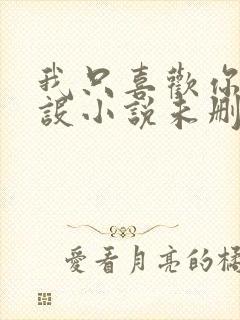 我只喜歡你
設小說未刪
愛看月亮的橘